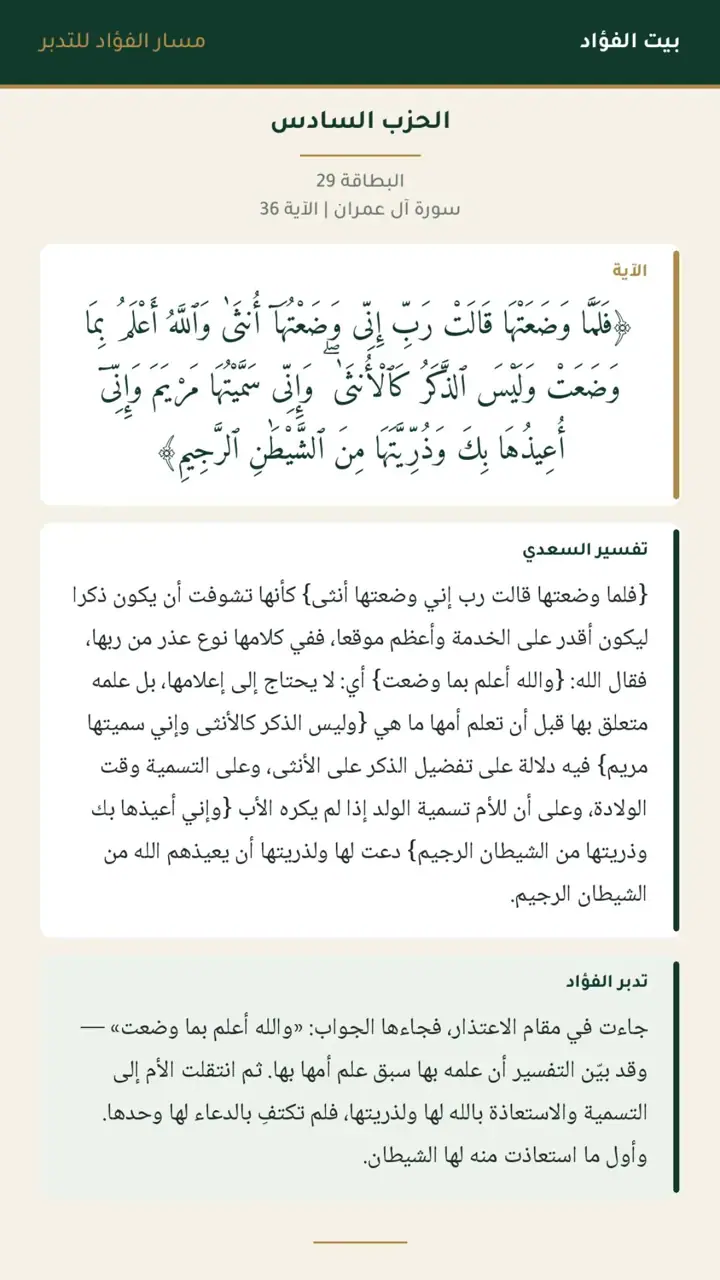 بيت الفؤاد
مسار الفؤاد للتدبر
الحزب السادس
البطاقة 29
سورة آل عمران | الآية 36
الآية
﴿فَلَمَّا وَضَعَتْهَا قَالَتْ رَبِّ إِنِّى وَضَعْتُهَآ أُنثَىٰ وَٱللَّهُ أَعْلَمُ بِمَا
وَضَعَتْ وَلَيْسَ ٱلذَّكَرُ كَٱلْأُنثَىٰ ۖ وَإِنِّى سَمَّيْتُهَا مَرْيَمَ وَإِنِّىٓ
أُعِيذُهَا بِكَ وَذُرِّيَّتَهَا مِنَ ٱلشَّيْطَٰنِ ٱلرَّجِيمِ﴾
تفسير السعدي
{فلما وضعتها قالت رب إني وضعتها أنثى} كأنها تشوفت أن يكون ذكرا
ليكون أقدر على الخدمة وأعظم موقعا، ففي كلامها نوع عذر من ربها،
فقال الله: {والله أعلم بما وضعت} أي: لا يحتاج إلى إعلامها، بل علمه
متعلق بها قبل أن تعلم أمها ما هي {وليس الذكر كالأنثى وإني سميتها
مريم} فيه دلالة على تفضيل الذكر على الأنثى، وعلى التسمية وقت
الولادة، وعلى أن للأم تسمية الولد إذا لم يكره الأب {وإني أعيذها بك
وذريتها من الشيطان الرجيم} دعت لها ولذريتها أن يعيذهم الله من
الشيطان الرجيم.
تدبر الفؤاد
جاءت في مقام الاعتذار، فجاءها الجواب: «والله أعلم بما وضعت» —
وقد بيّن التفسير أن علمه بها سبق علم أمها بها. ثم انتقلت الأم إلى
التسمية والاستعاذة بالله لها ولذريتها، فلم تكتفِ بالدعاء لها وحدها.
وأول ما استعاذت منه لها الشيطان.